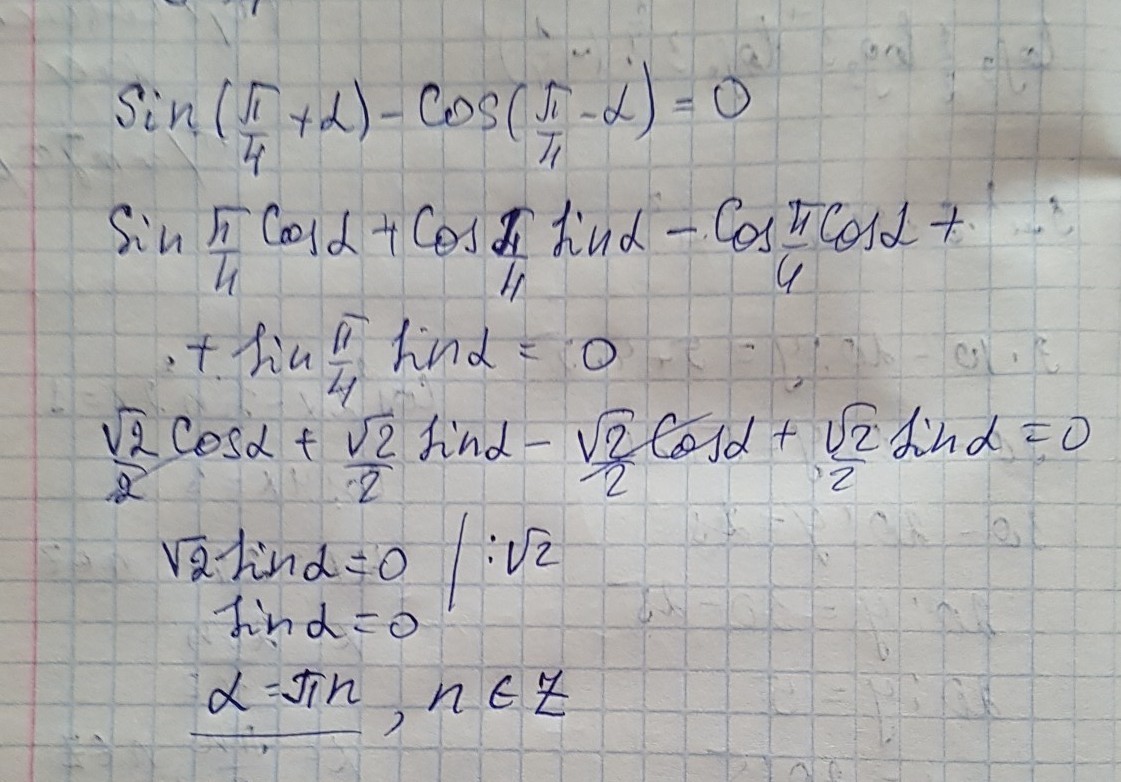 Sin(π/4 + α) - Cos(π/4 - α) = 0
Sin π/4 Cosα + Cos π/4 sinα - Cos π/4 Cosα +
+ sin π/4 sinα = 0
√2/2 Cosα + √2/2 sinα - √2/2 Cosα + √2/2 sinα = 0
√2 sinα = 0 | :√2
sinα = 0
α = πn, n ∈ Z